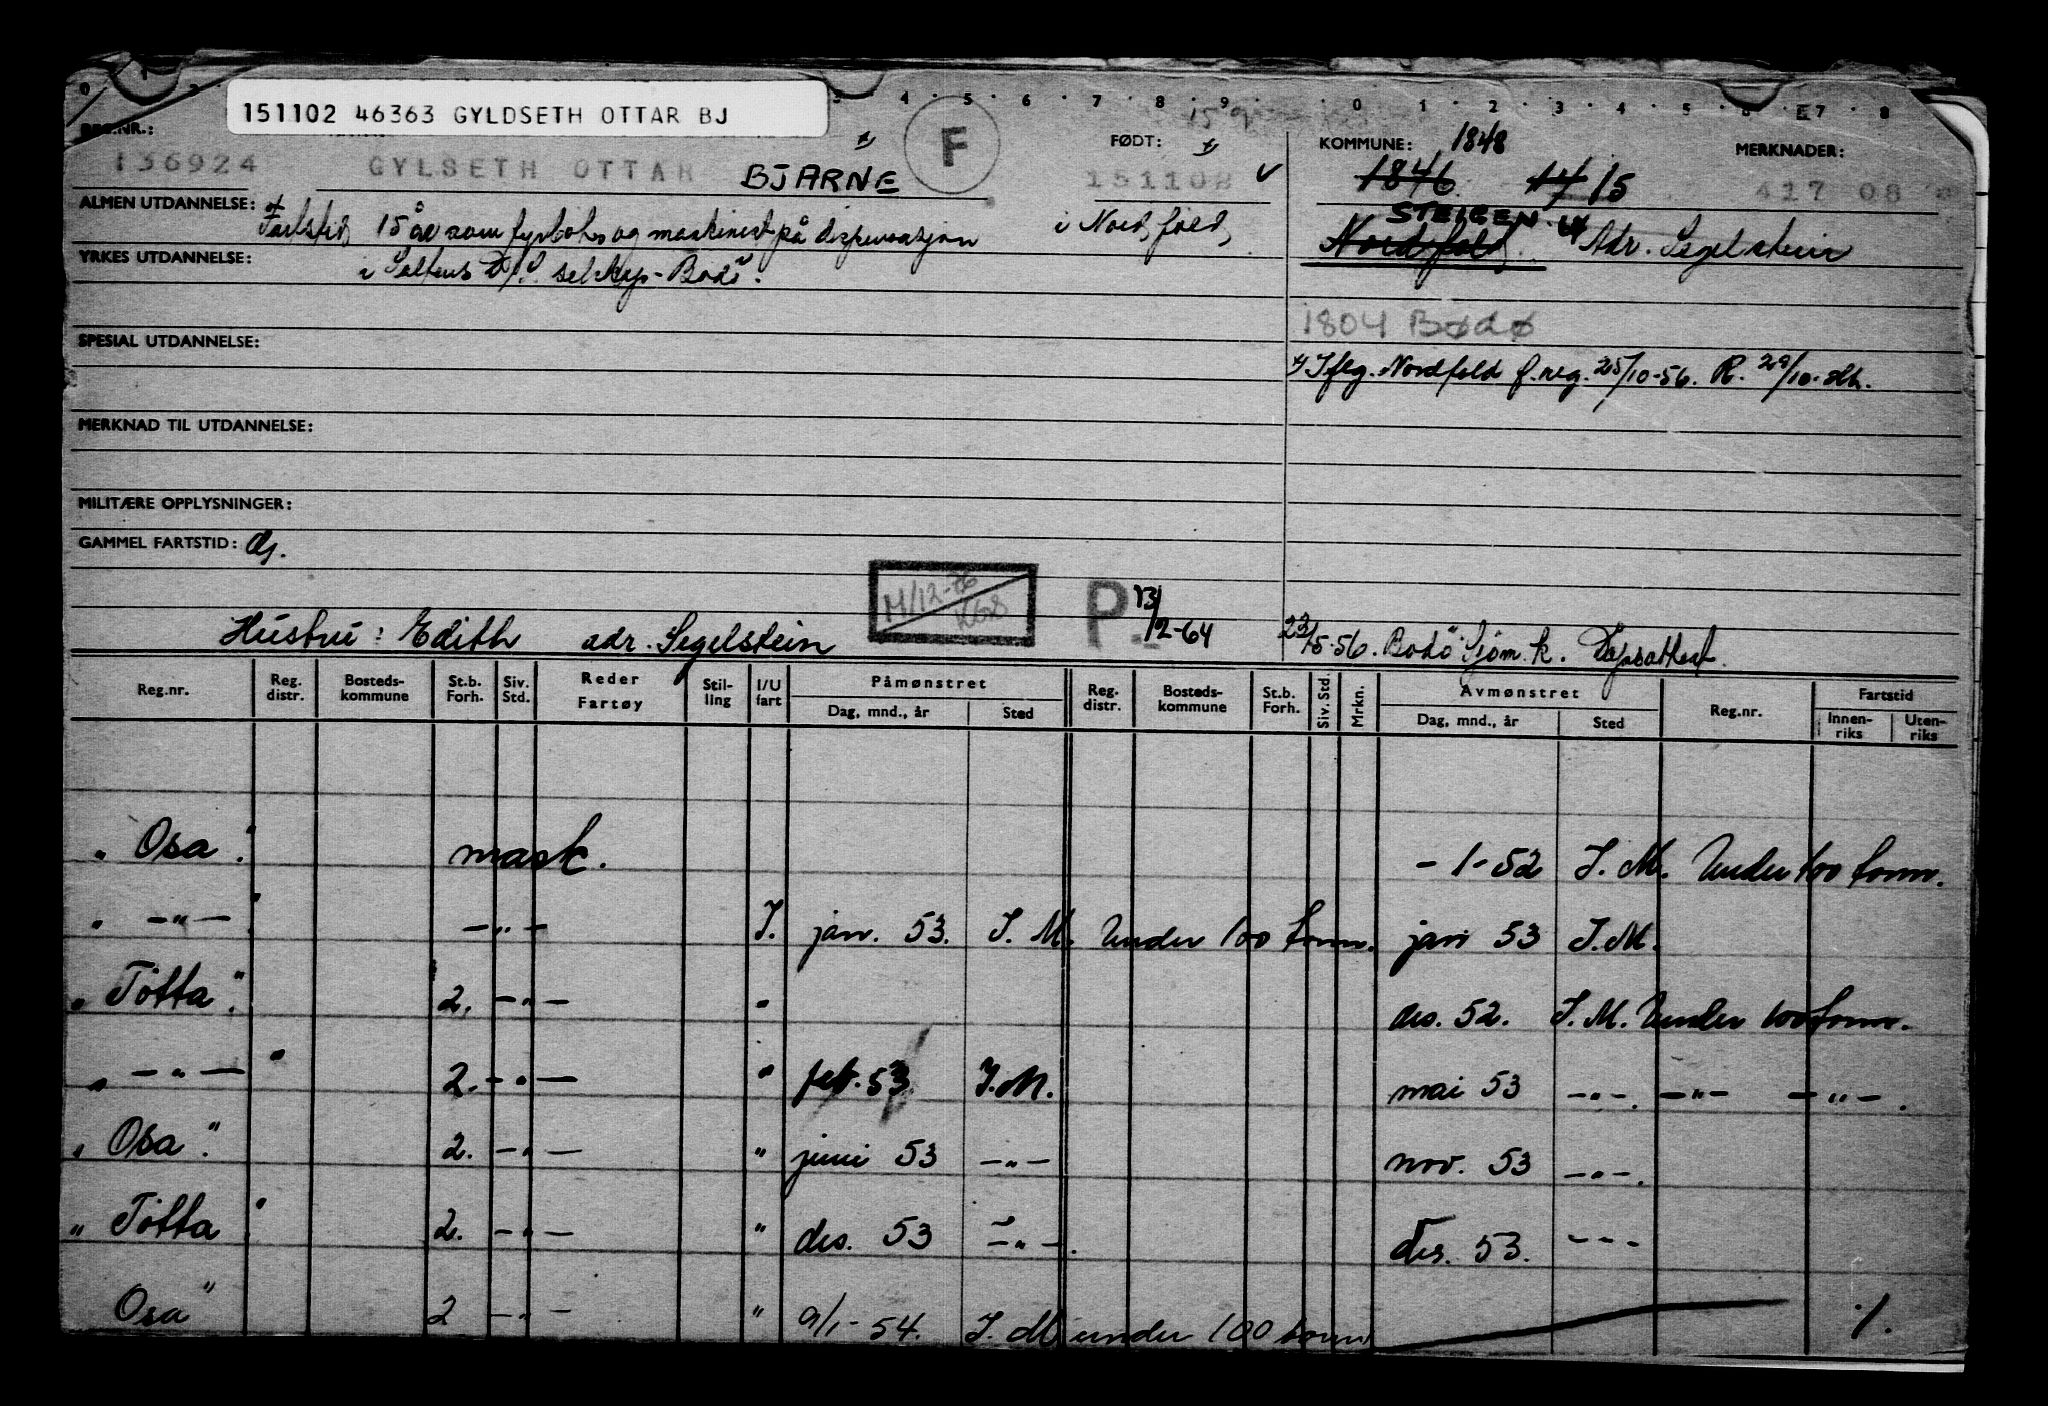 151102 46363 GYLDSETH OTTAR BJ
REG.NR.:
F
FØDT:
KOMMUNE: 1848
MERKNADER:
136924 GYLSETH OTTAR BJARNE 151102 1846 14 15 417 08
ALMEN UTDANNELSE: Fartstid 15 år som fyrbøter og maskinist på dispensasjon i Nordfold, STEIGEN Nordfold Adr. Segelstein
YRKES UTDANNELSE: i Saltens D/S selskap - Bodö.
1804 Bodø
SPESIAL UTDANNELSE:
x) Iflg. Nordfold f.reg. 25/10-56. R. 29/10-
MERKNAD TIL UTDANNELSE:
MILITÆRE OPPLYSNINGER:
GAMMEL FARTSTID:
P. 13/2-64
Hustru: Edith adr. Segelstein
23/5-56. Bodö Sjøm.k.
Reg.nr. Reg. distr. Bosteds-kommune St.b. Forh. Siv. Std. Reder Fartøy Stil-ling I/U fart Påmønstret Dag, mnd., år Sted Reg. distr. Bosteds-kommune St.b. Forh. Siv. Std. Mrkn. Avmønstret Dag, mnd., år Sted Reg.nr. Fartstid Innen-riks Uten-riks
"Osa" mask. -1-52 I.M. Under 100 tonn.
" -"- " -"- I. jan. 53. I.M. Under 100 tonn. jan 53 I.M.
"Totta". 2. -"- " des. 52. I.M. Under 100 tonn.
" -"- " 2. -"- " febr. 53 I.M. mai 53 -"-. -"- -"-.
"Osa". 2. -"- " juni 53 -"- nov. 53 -"-.
"Totta" 2. -"- " des. 53 -"-. des. 53. -"-
Osa" 2 -"- " 9/1-54. I.M under 100 tonn ./.